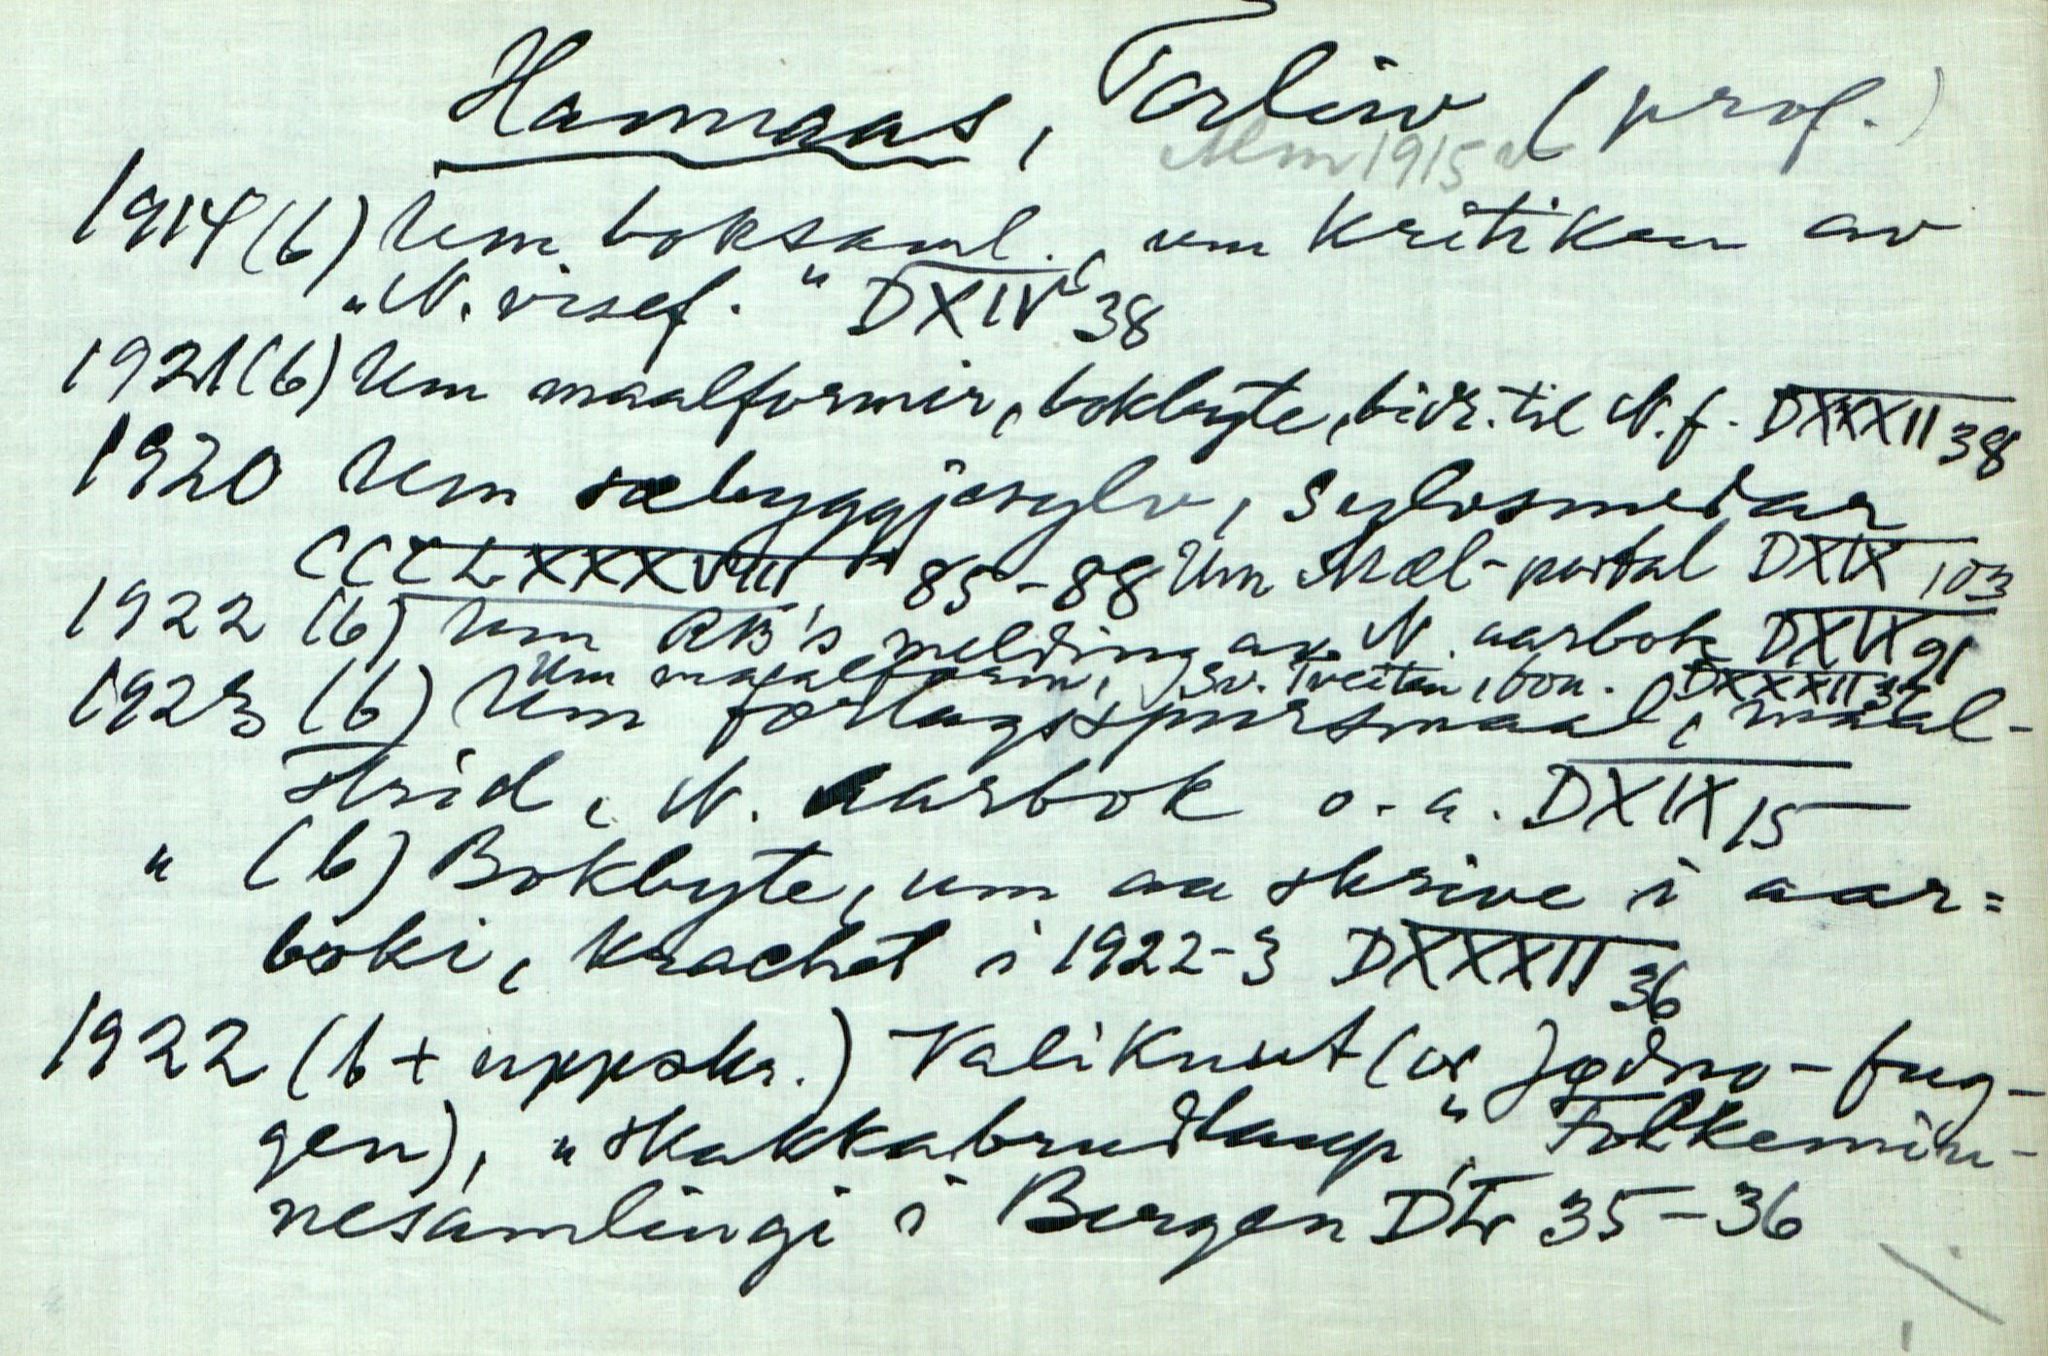 Hannaas, Torleiv (prof.)
Mm 1915
1914 (b) Um boksaml., um kritiken av
"N. visef." DXIV 38
1921 (b) Um maalformer, bokbyte, bidr. til N. f. DXXXII 38
1920 Um sæbyggjesylv, sylvsmedar
CCCLXXXVIII 85-88 Um Mæl-portal DXIX 103
1922 (b) Um RB's melding av N. aarbok DXIX 91
Um maalform, Sv. Tveitan, bok. DXXXII 37
1923 (b) Um forlagsspursmaal, maal-
strid, N. aarbok o. a. DXIX 15
" (b) Bokbyte, um aa skrive i aar=
boki, krachet i 1922-3 DXXXII 36
1922 (b + uppskr.) Valiknut (or Jødno-fug-
gen), "skakkabrudlaup", Folkemin-
nesamlingi i Bergen 35-36